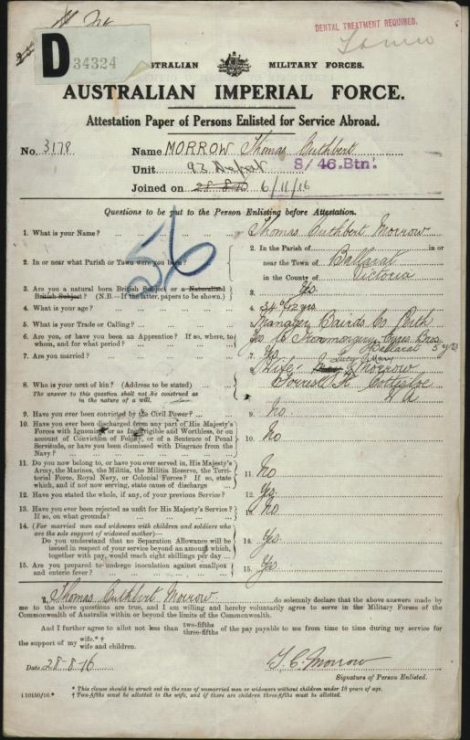 DENTAL TREATMENT REQUIRED.
D 34324
AUSTRALIAN MILITARY FORCES.
AUSTRALIAN IMPERIAL FORCE.
Attestation Paper of Persons Enlisted for Service Abroad.
No. 3178 Name MORROW Thomas Cuthbert
Unit 92 Depot 8/46.Btn.
Joined on 28-8-16 6/11/16
Questions to be put to the Person Enlisting before Attestation.
56
1. What is your Name? 1. Thomas Cuthbert Morrow
2. In or near what Parish or Town were you born? 2. In the Parish of in or
near the Town of Ballarat
in the County of Victoria
3. Are you a natural born British Subject or a Naturalized 3. Yes.
British Subject? (N.B.—If the latter, papers to be shown.)
4. What is your age? 4.
5. What is your Trade or Calling? 5. Manager Bairds Co Perth
6. Are you, or have you been, an Apprentice? If so, where, to 6.
whom, and for what period? Ballarat 5 yrs
7. Are you married? 7. Yes
8. Who is your next of kin? (Address to be stated) 8. Wife Morrow
The answer to this question shall not be construed as
in the nature of a will. Cottesloe
W A
9. Have you ever been convicted by the Civil Power? 9. No
10. Have you ever been discharged from any part of His Majesty's
Forces with Ignominy, or as Incorrigible and Worthless, or on
account of Conviction of Felony, or of a Sentence of Penal 10. No
Servitude, or have you been dismissed with Disgrace from the
Navy?
11. Do you now belong to, or have you ever served in, His Majesty's
Army, the Marines, the Militia, the Militia Reserve, the Terri-
torial Force, Royal Navy, or Colonial Forces? If so, state 11. No
which, and if not now serving, state cause of discharge
12. Have you stated the whole, if any, of your previous Service? 12. Yes
13. Have you ever been rejected as unfit for His Majesty's Service? 13. No
If so, on what grounds?
14. (For married men and widowers with children and soldiers who
are the sole support of widowed mother)—
Do you understand that no Separation Allowance will be 14. Yes.
issued in respect of your service beyond an amount which
together with pay, would reach eight shillings per day
15. Are you prepared to undergo inoculation against smallpox 15. Yes
and enteric fever?
I, Thomas Cuthbert Morrow do solemnly declare that the above answers made by
me to the above questions are true, and I am willing and hereby voluntarily agree to serve in the Military Forces of the
Commonwealth of Australia within or beyond the limits of the Commonwealth.
And I further agree to allot not less than two-fifths three-fifths of the pay payable to me from time to time during my service for
the support of my wife.*† wife and children.
Date 28-8-16 T. C. Morrow
Signature of Person Enlisted.
* This clause should be struck out in the case of unmarried men or widowers without children under 18 years of age.
† Two-fifths must be allotted to the wife, and if there are children three-fifths must be allotted.